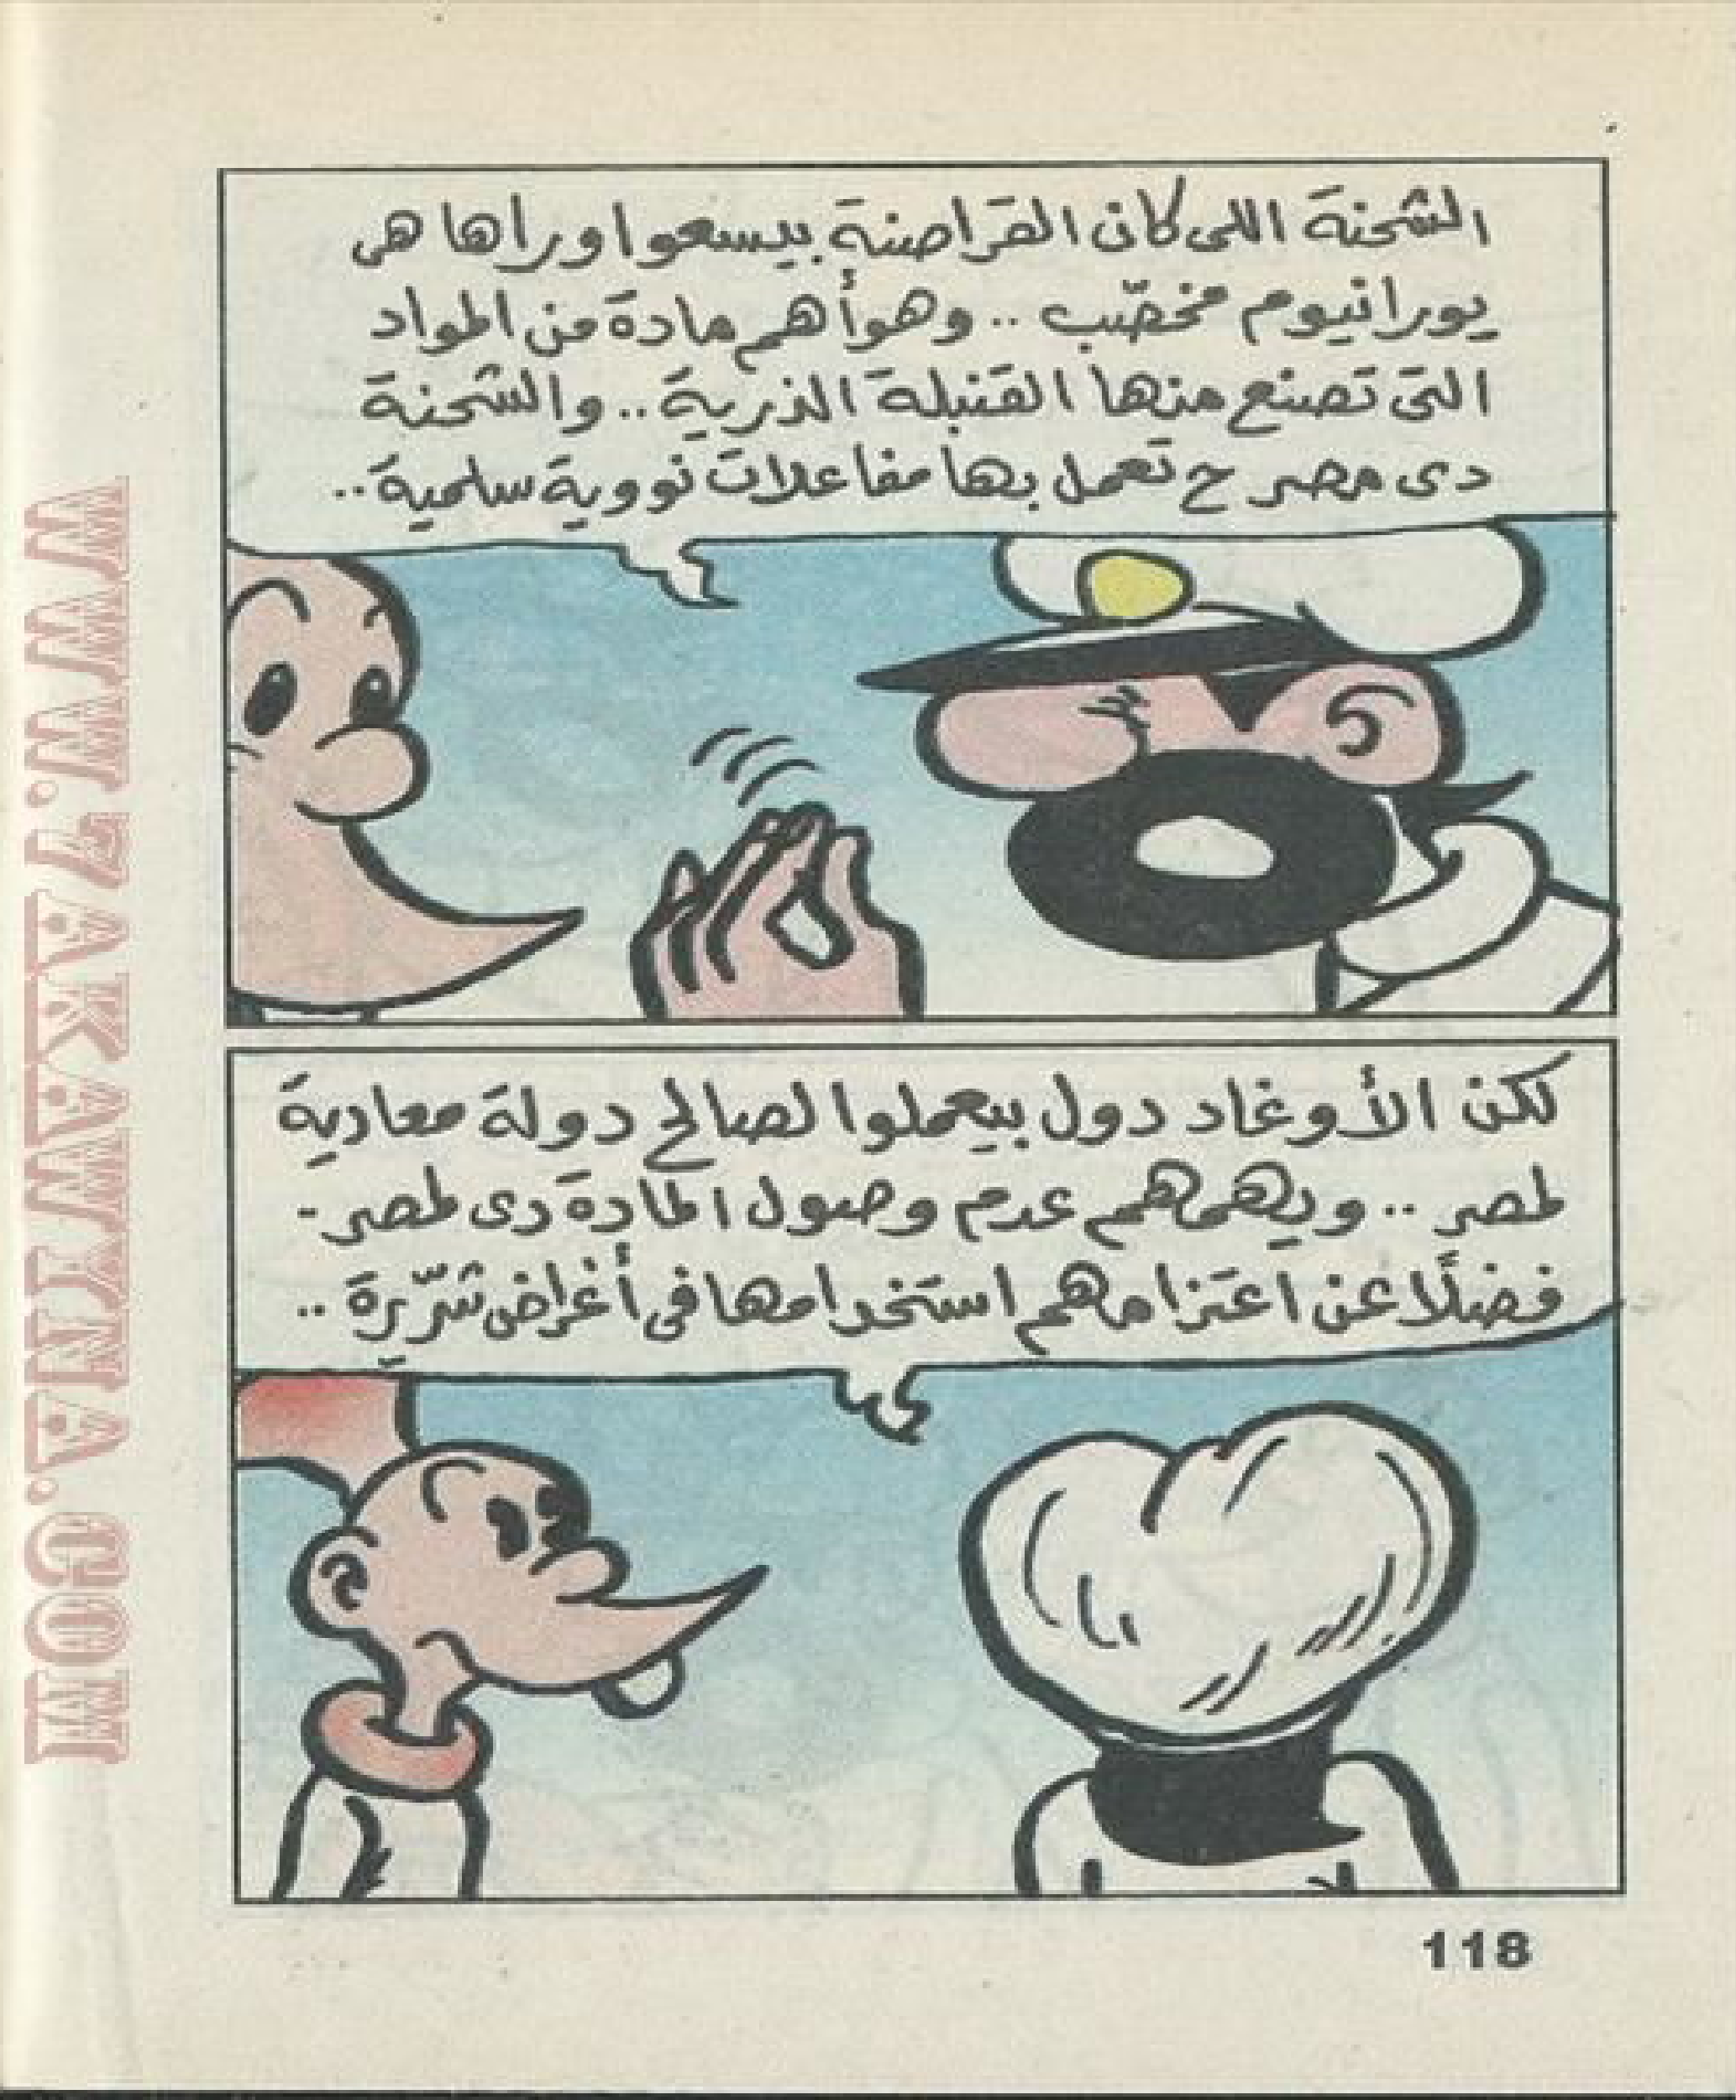 الشحنة اللى كان القراصنة بيسعوا وراها هى
يورانيوم مخصّب .. وهو أهم مادة من المواد
التى تصنع منها القنبلة الذرية .. والشحنة
دى مصر ح تعمل بها مفاعلات نووية سلمية ..
لكن الأوغاد دول بيعملوا لصالح دولة معادية
لمصر .. ويهمهم عدم وصول المادة دى لمصر -
فضلًا عن اعتزامهم استخدامها فى أغراض شرّيرة ..
118
WWW.7AKAWINA.COM